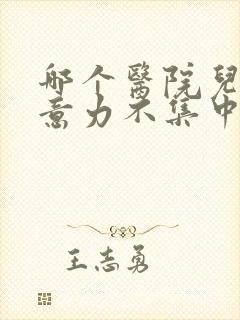 哪个醫院兒
意力不集中
王志勇